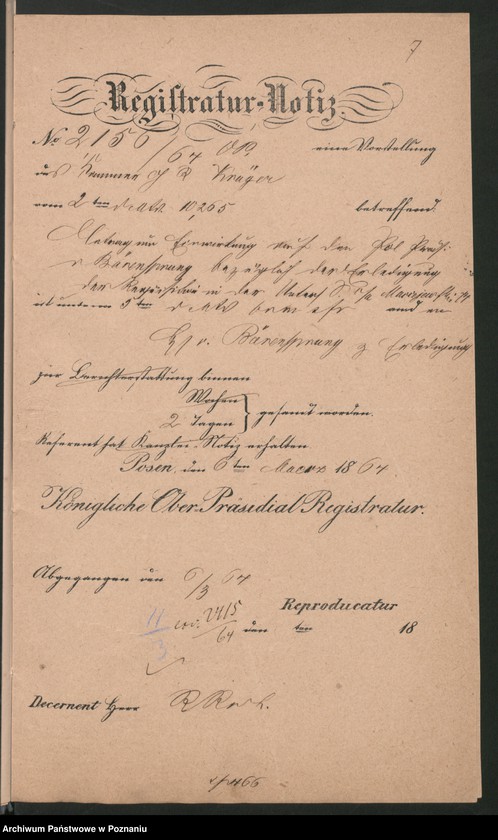 7
Registratur-Notiz.
No 2156/64 OP. eine Vorstellung
des Kammer G R Krüger
vom 2ten d. Mts 10,265 betreffend.
Antrag um Einwirkung auf den Pol Präs.
v Bärensprung bezüglich der Erledigung
der Requisition in der Unters S.
ist unterm 5ten d Mts brm und an
H v. Bärensprung z Erledigung
zur Berichterstattung binnen
Wochen
2 Tagen } gesandt worden.
Referent hat Kanzlei-Notiz erhalten
Posen, den 6ten Maerz 1864
Königliche Ober-Präsidial Registratur.
Abgegangen den 6/3 64
Reproducatur
11/3 2415/64 den ten 18
Decernent Herr R
Archiwum Państwowe w Poznaniu